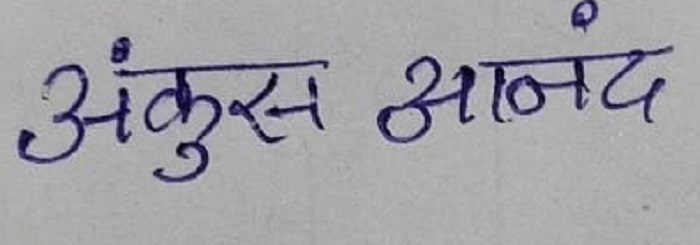 अंकुस आनंद